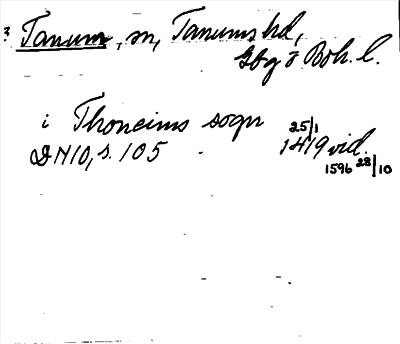 ? Tanum, sn, Tanums hd,
Gbg o Boh. l.
i Thoneims sogn 25/1
DN10, s. 105 1419 vid.
1596 28/10